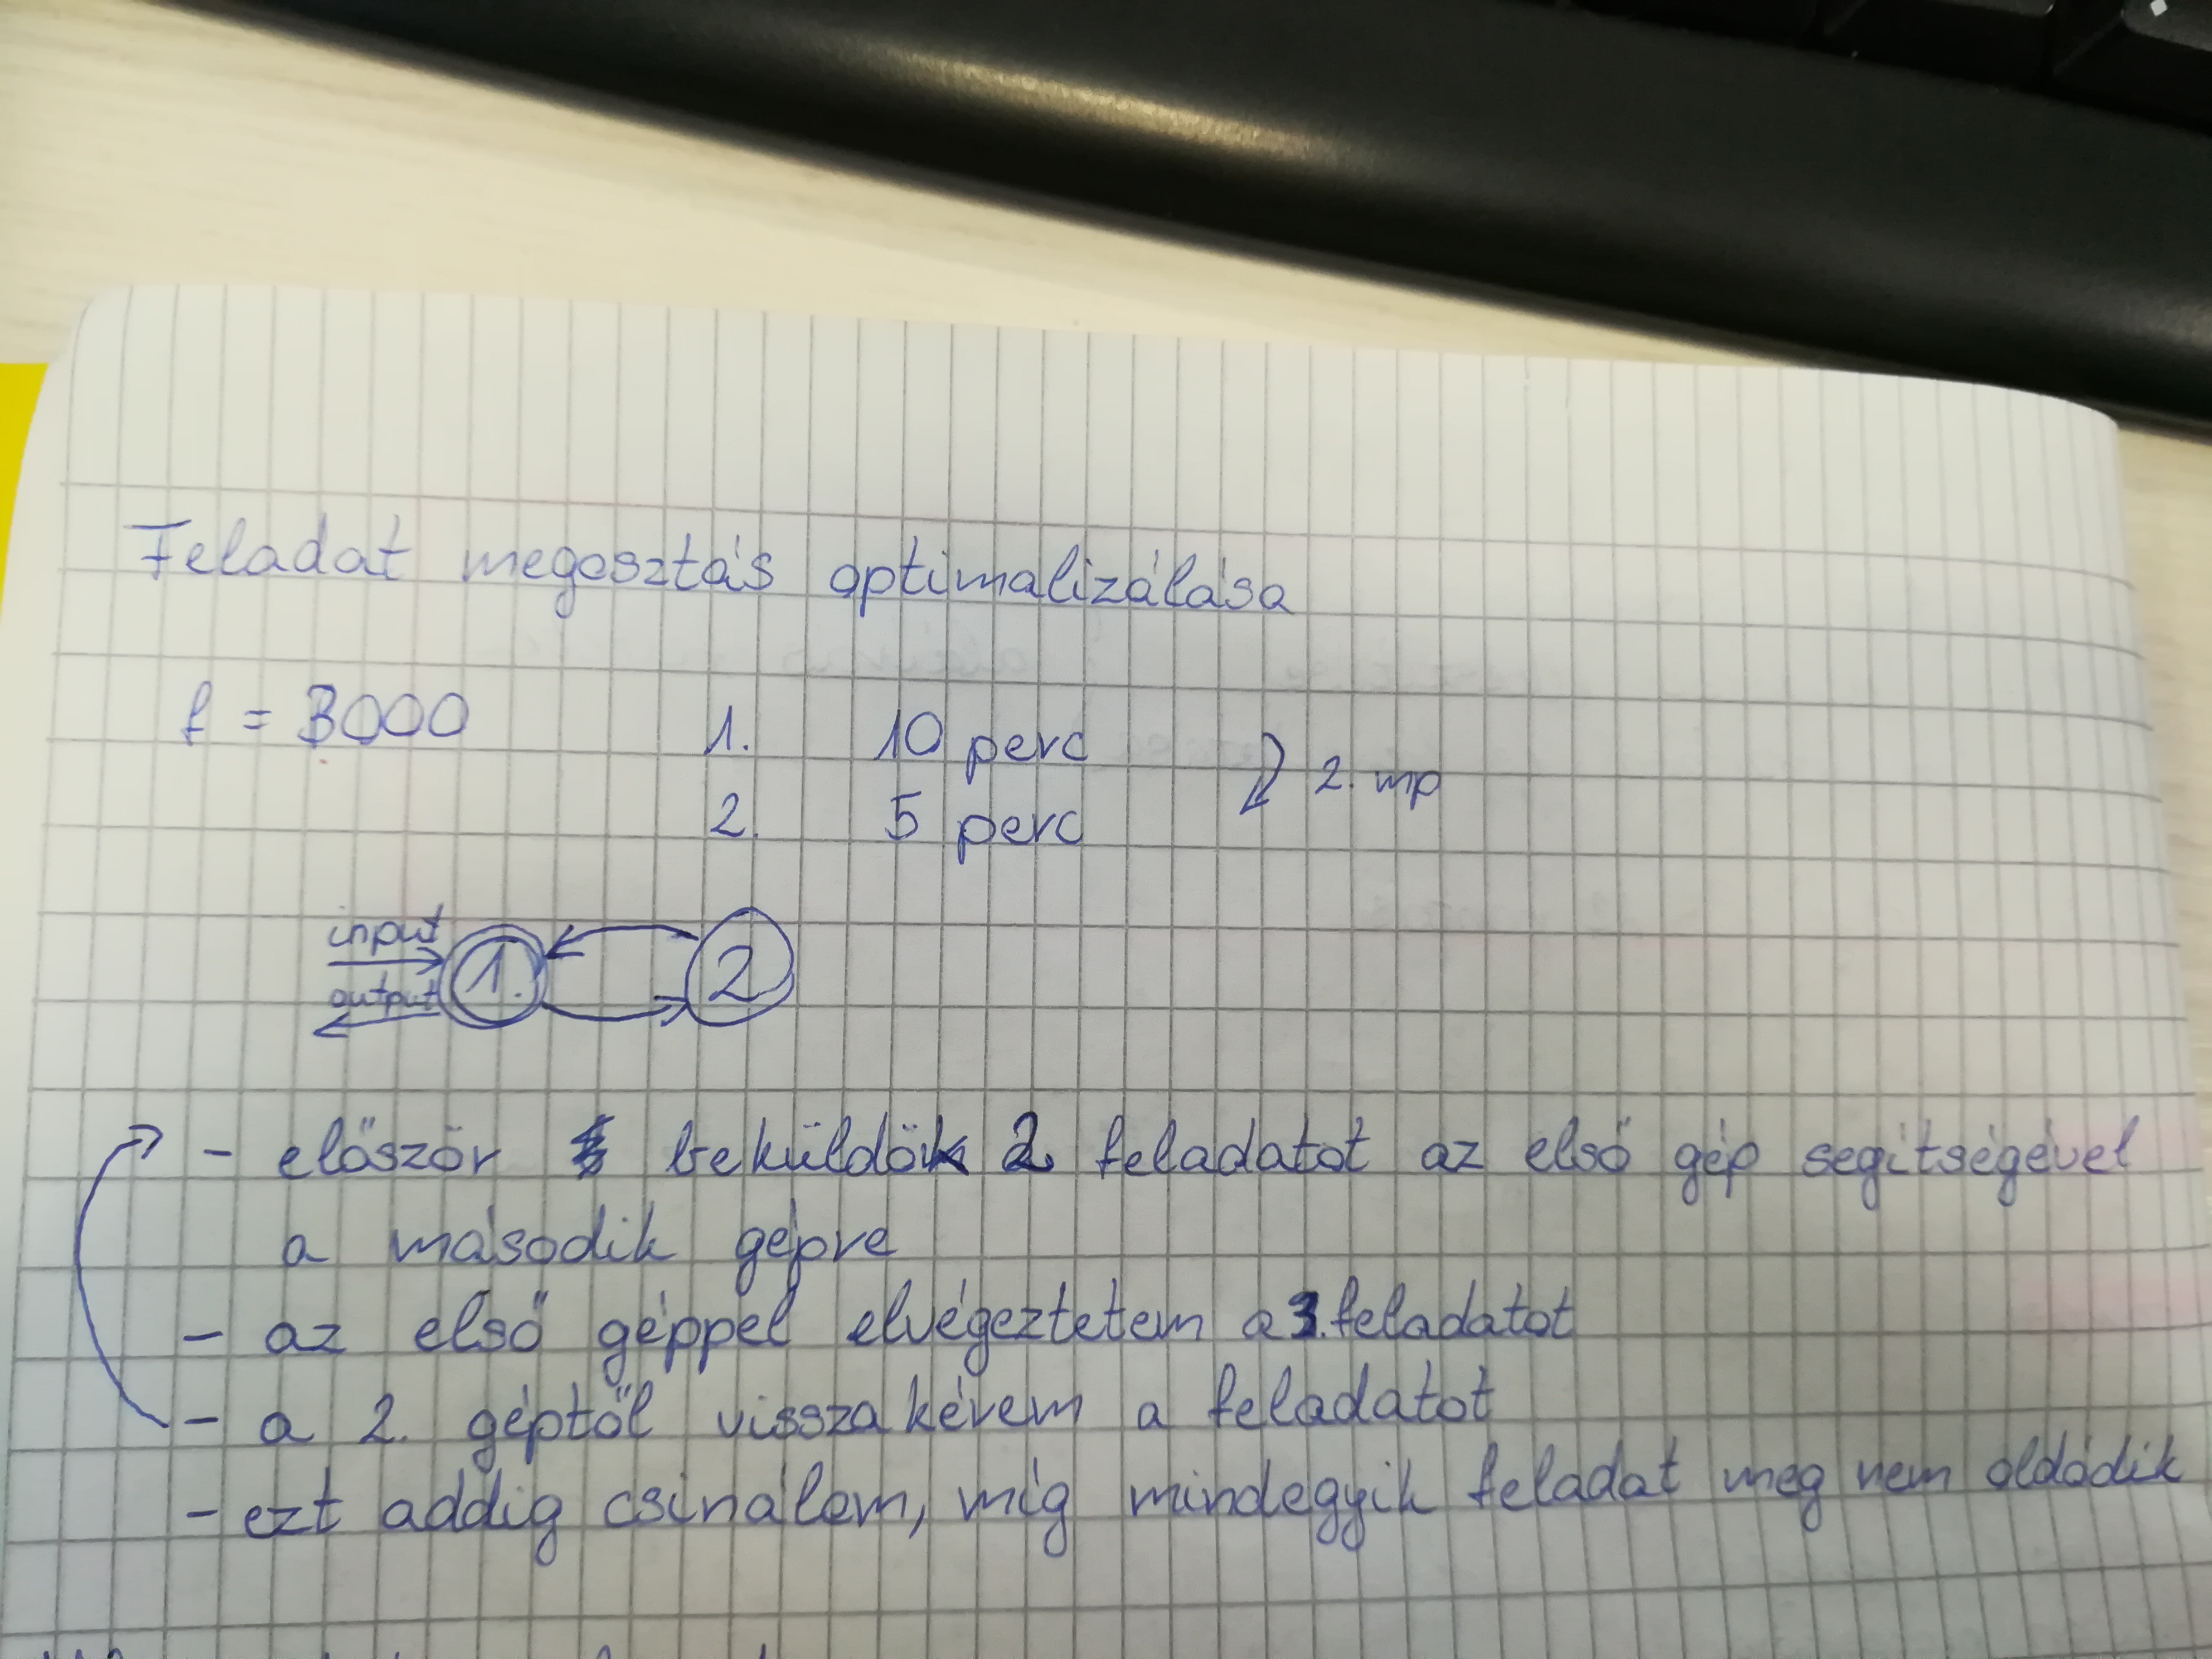 Feladat megosztás optimalizálása
f = 3000
1. 10 perc
2. 5 perc
2. mp
input
output
1.
2
- először beküldök 2 feladatot az első gép segítségével
a második gépre
- az első géppel elvégeztetem a 3. feladatot
- a 2. géptől visszakérem a feladatot
- ezt addig csinálom, míg mindegyik feladat meg nem oldódik